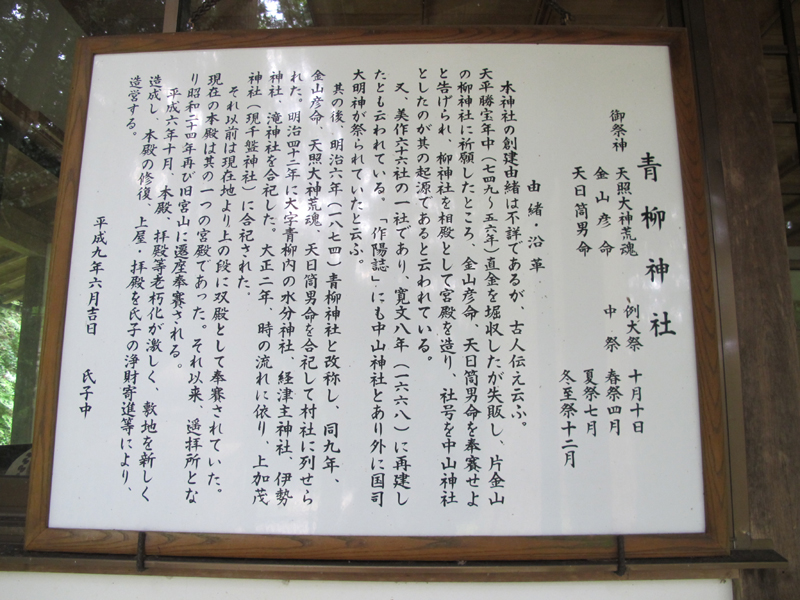 青柳神社
御祭神 天照大神荒魂 例大祭 十月十日
金山彦命 中祭 春祭四月
天日筒男命 夏祭七月
冬至祭十二月
由緒・沿革
本神社の創建由緒は不詳であるが、古人伝え云ふ。
天平勝宝年中(七四九~五六年)直金を堀収したが失敗し、片金山
の柳神社に祈願したところ、金山彦命、天日筒男命を奉賽せよ
と告げられ、柳神社を相殿として宮殿を造り、社号を中山神社
としたのが其の起源であると云われている。
又、美作六六社の一社であり、寛文八年(一六六八)に再建し
たとも云われている。「作陽誌」にも中山神社とあり外に国司
大明神が祭られていたと云ふ。
其の後、明治六年(一八七四)青柳神社と改称し、同九年、
金山彦命、天照大神荒魂、天日筒男命を合祀して村社に列せら
れた。明治四十二年に大字青柳内の水分神社、経津主神社、伊勢
神社、滝神社を合祀した。大正二年、時の流れに依り、上加茂
神社(現千盤神社)に合祀された。
それ以前は現在地より上の段に双殿として奉賽されていた。
現在の本殿は其の一つの宮殿であった。それ以来、遥拝所とな
り昭和二十四年再び旧宮山に遷座奉賽される。
平成六年十月、本殿、拝殿等老朽化が激しく、敷地を新しく
造成し、本殿の修復、上屋・拝殿を氏子の浄財寄進等により、
造営する。
平成九年六月吉日 氏子中